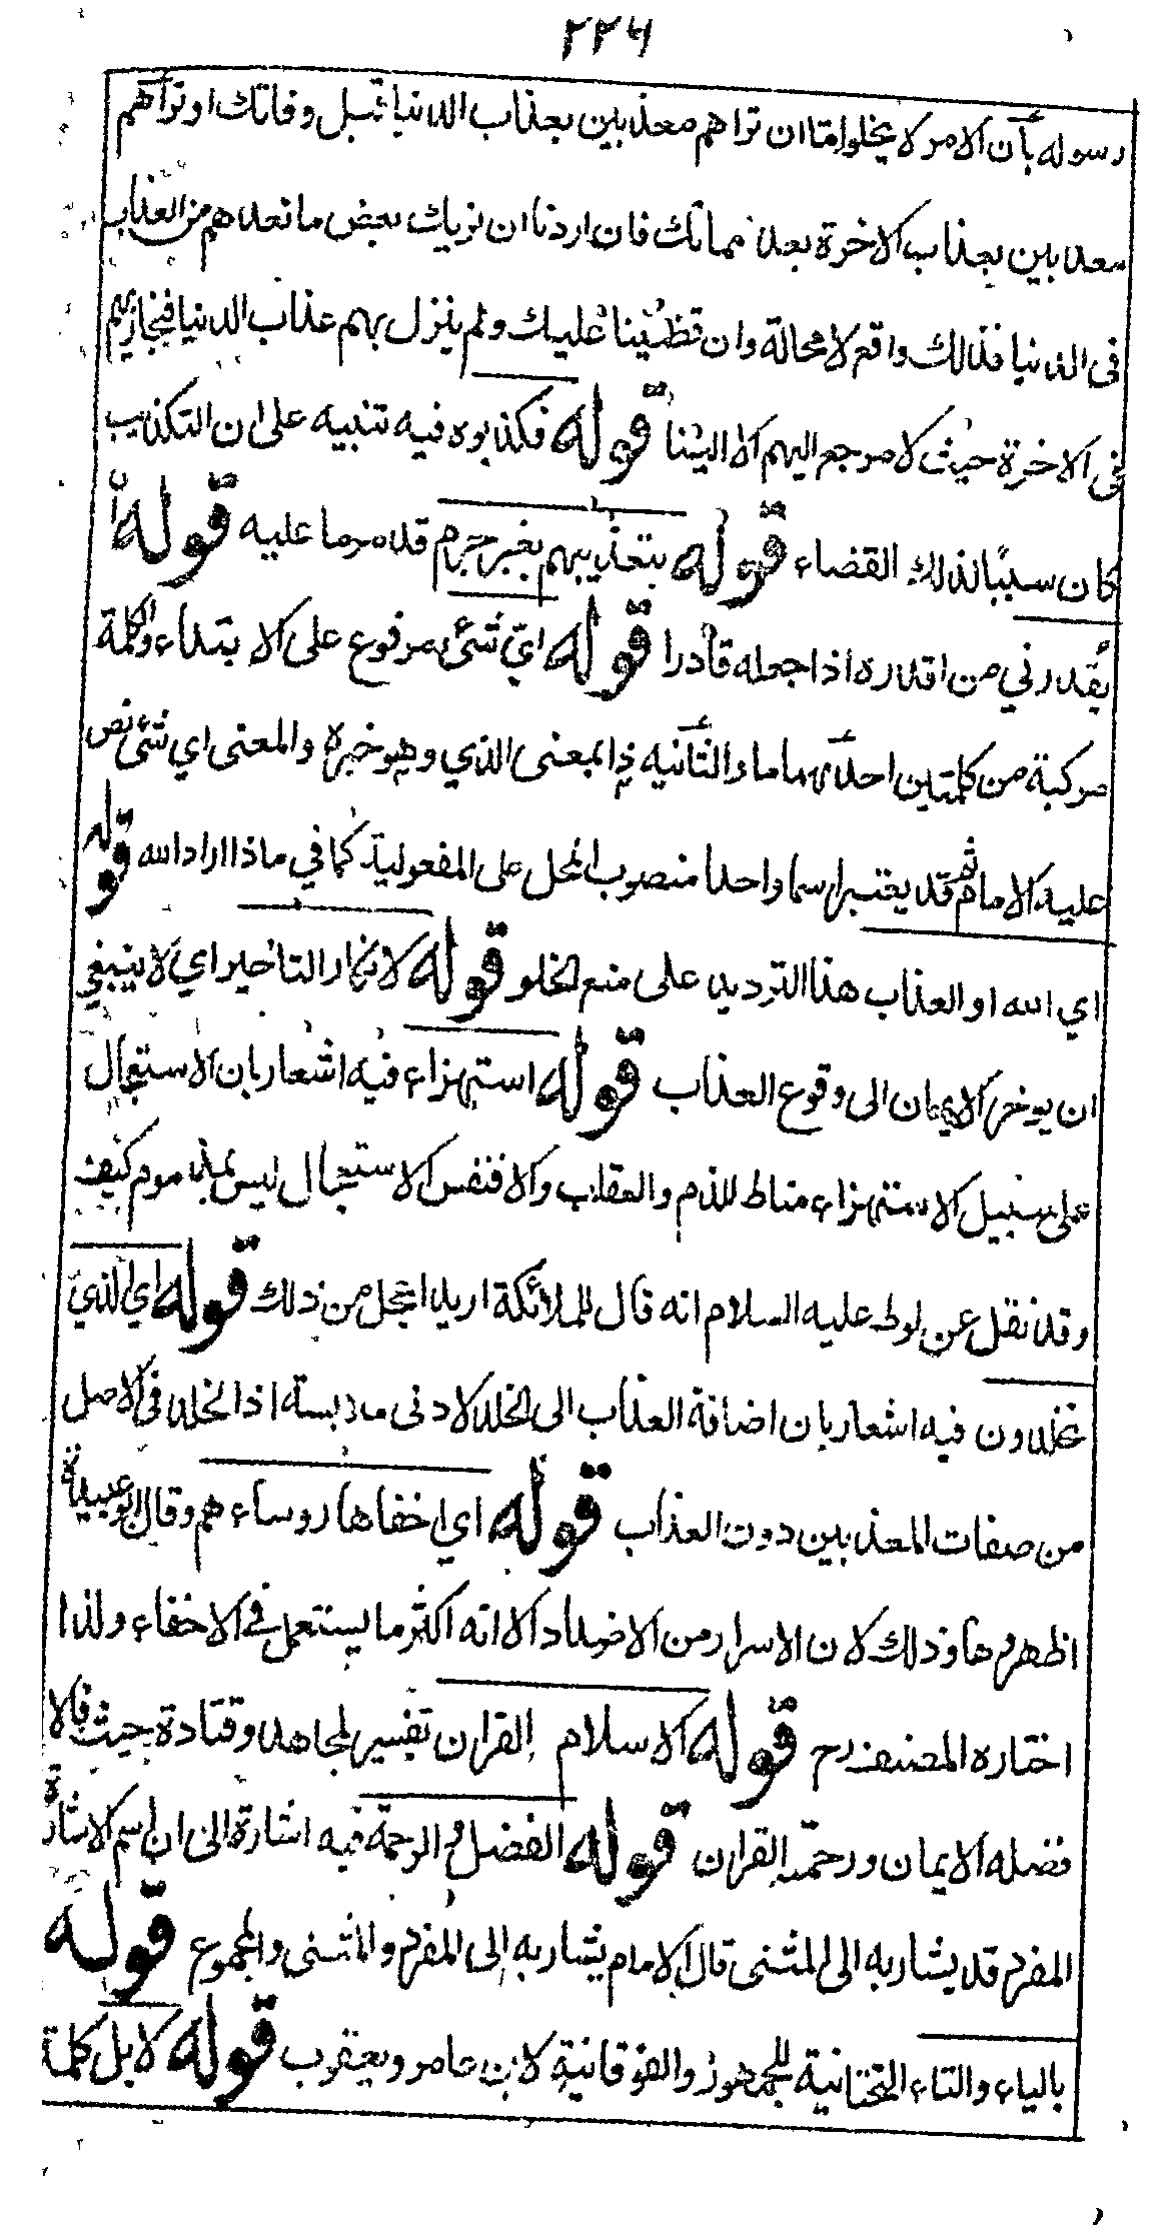 ٢٢٦
رسوله بأن الامر لا يخلوا ما ان تراهم معذبين بعذاب الدنيا قبل وفاتك او تراهم
معذبين بعذاب الاخرة بعد مماتك فان اردنا ان نريك بعض ما نعدهم من العذاب
فى الدنيا فذالك واقع لا محالة وان قضينا عليك ولم ينزل بهم عذاب الدنيا فنجازيهم
فى الاخرة حيث لا مرجع اليهم الا الينا قوله فكذبوه فيه تنبيه على ان التكذيب
كان سببا لذلك القضاء قوله بتعذيبهم بغير جرم قد مر ما عليه قوله
يقدرني من اقدره اذا جعله قادرا قوله اي شئ مرفوع على الابتداء والكلمة
مركبة من كلمتين احدٰهما ما والثانيه ذا بمعنى الذي وهو خبره والمعنى اي شئ نص
عليه الامام ثم قد يعتبر اسما واحدا منصوب المحل على المفعولية كما في ماذا اراد الله قوله
اي الله او العذاب هذا الترديد على منع الخلو قوله لانكار التاخير اي لا ينبغي
ان يوخر الايمان الى وقوع العذاب قوله استهزاء فيه اشعار بان الاستعجال
على سبيل الاستهزاء مناط للذم والعقاب والا فنفس الاستعجال ليس بمذموم كيف
وقد نقل عن لوط عليه السلام انه قال للملائكة اريد اعجل من ذلك قوله اي الذي
تخلدون فيه اشعار بان اضافة العذاب الى الخلد لادنى ملابسته اذا الخلد فى الاصل
من صفات المعذبين دون العذاب قوله اي اخفاها روساءهم وقال ابو عبيدة
اظهروها وذلك لان الاسرار من الاضداد الا انه اكثر ما يستعمل في الاخفاء ولذا
اختاره المصنف رح قوله الاسلام القران تفسير لمجاهد وقتادة حيث قالا
فضله الايمان ورحمته القران قوله الفضل والرحمة فيه اشارة الى ان اسم الاشارة
المفرد قد يشار به الى المثنى قال الامام يشار به الى المفرد والمثنى والمجموع قوله
بالياء والتاء التحتانية للجمهور والفوقانية لابن عامر ويعقوب قوله لا بل كلمة